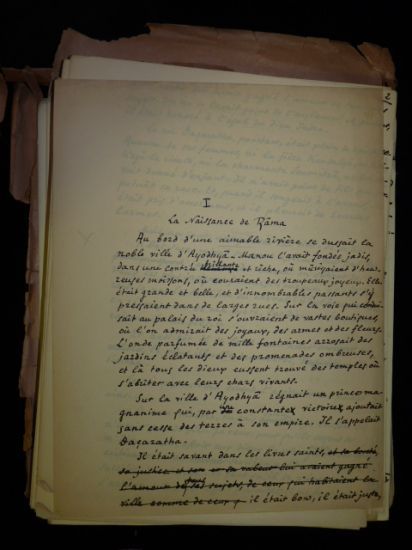 I
La Naissance de Râma
Au bord d'une aimable rivière se dressait la
noble ville d'Ayodhyâ. Manou l'avait fondée jadis,
dans une contrée brillante et riche, où mûrissaient d'heu-
reuses moissons, où couraient des troupeaux joyeux. Elle
était grande et belle, et d'innombrables passants s'y
pressaient dans de larges rues. Sur la voie qui condui-
sait au palais du roi s'ouvraient de vastes boutiques,
où l'on admirait des joyaux, des armes et des fleurs.
L'onde parfumée de mille fontaines arrosait des
jardins éclatants et des promenades ombreuses,
et là tous les dieux eussent trouvé des temples où
s'abriter avec leurs chars vivants.
Sur la ville d'Ayodhyâ régnait un prince ma-
gnanime qui, par constantes victoires, ajoutait
sans cesse des terres à son empire. Il s'appelait
Daçaratha.
Il était savant dans les livres saints, et sa bonté,
sa justice et sa valeur lui avaient gagné
l'amour de ses sujets, de ceux qui habitaient la
ville comme de ceux q il était bon, il était juste,